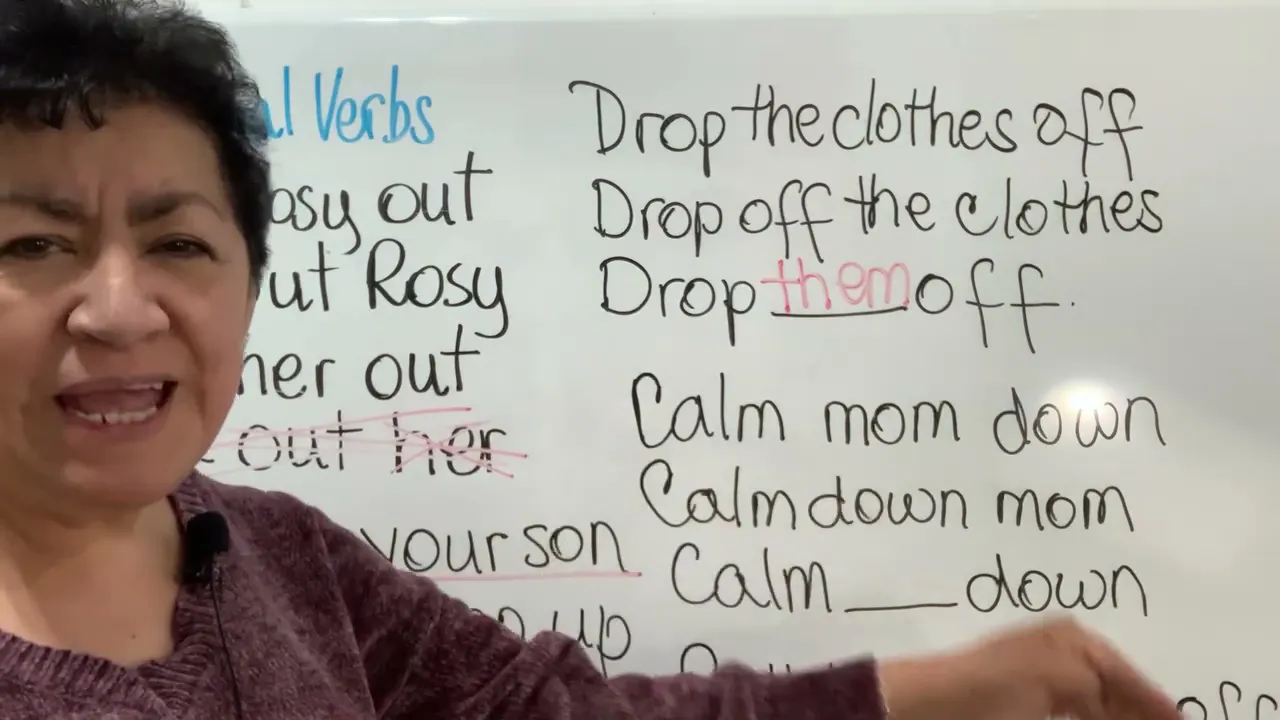 Verbs
out
Rosy
out
out her
your son
up
Drop the clothes off
Drop off the clothes
Drop them off.
Calm mom down
Calm down mom
Calm ___ down